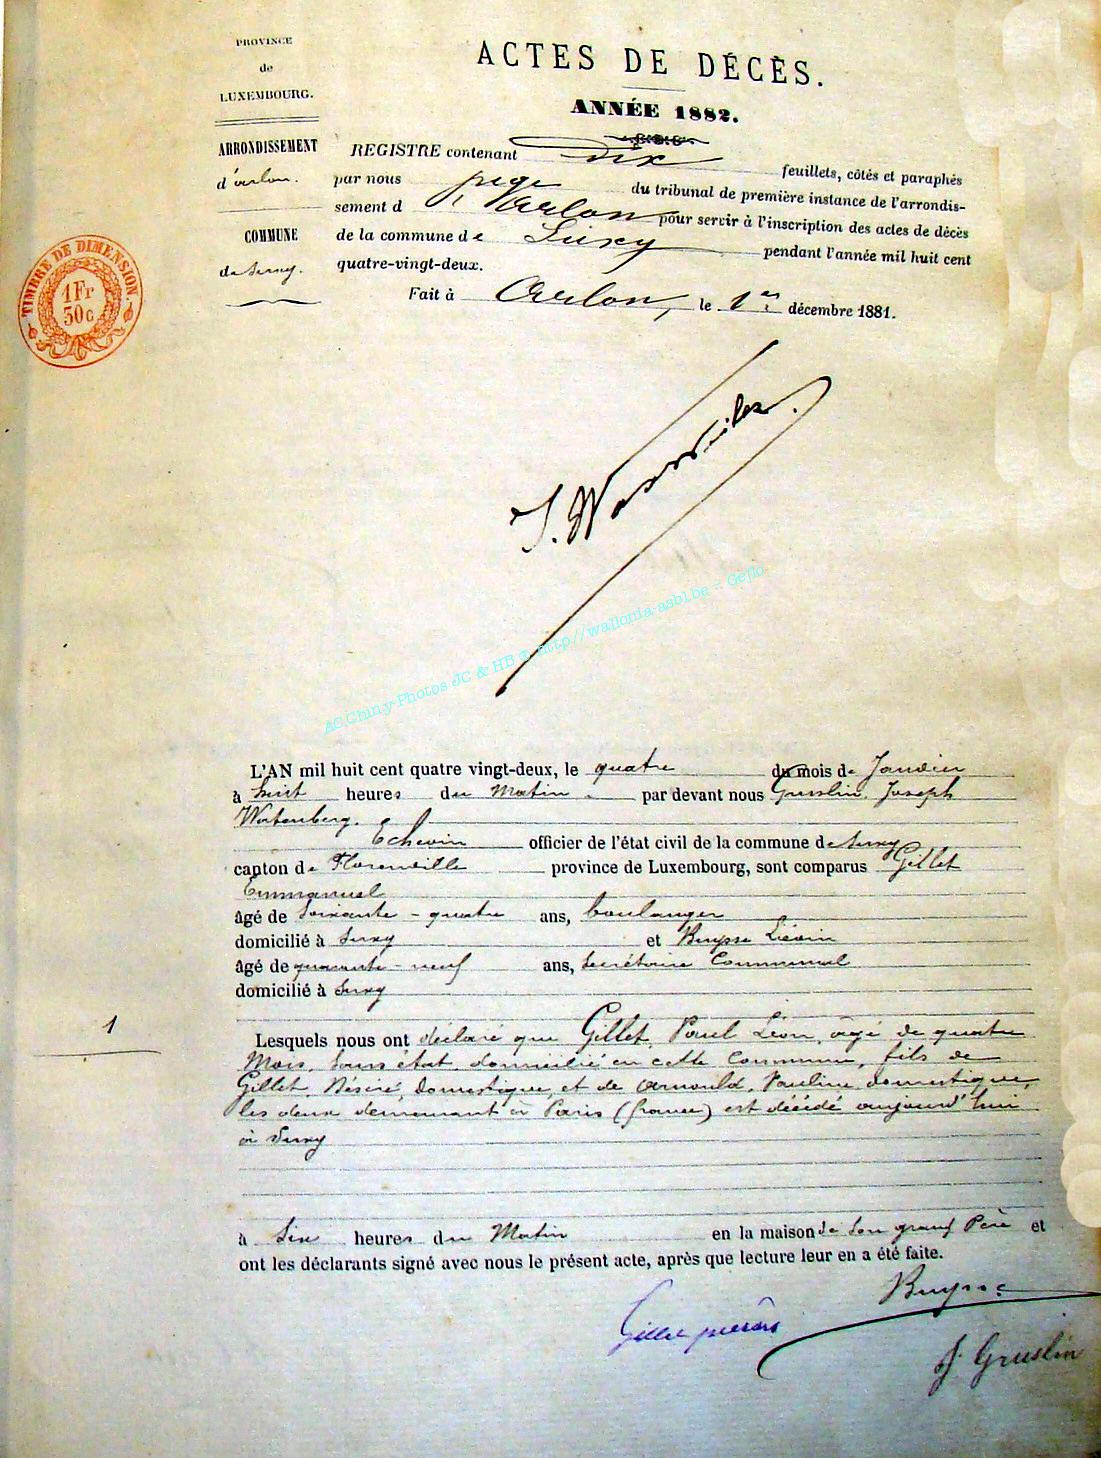 PROVINCE
de
LUXEMBOURG.
ARRONDISSEMENT
d'arlon.
COMMUNE
de Suxy.
TIMBRE DE DIMENSION.
1 Fr
30 c
ACTES DE DÉCÈS.
ANNÉE 1882.
REGISTRE contenant dix feuillets, côtés et paraphés
par nous juge du tribunal de première instance de l'arrondis-
sement d'Arlon pour servir à l'inscription des actes de décès
de la commune de Suxy pendant l'année mil huit cent
quatre-vingt-deux.
Fait à Arlon, le 1er décembre 1881.
AC Chiny-Photos JC & HB @ http//wallonia-asbl.be - Geflo
L'AN mil huit cent quatre vingt-deux, le quatre du mois de Janvier
à huit heures du Matin par devant nous Gruslin, Joseph
Wartenberg. Echevin officier de l'état civil de la commune de Suxy
canton de Florenville province de Luxembourg, sont comparus Gillet
Emmanuel
âgé de Soixante-quatre ans, boulanger
domicilié à Suxy et Buysse Liévin
âgé de quarante-neuf ans, Secrétaire Communal
domicilié à Suxy
1
Lesquels nous ont déclaré que Gillet, Paul Léon, âgé de quatre
Mois, Sans état, domicilié en cette Commune, fils de
Gillet, Désiré, Domestique, et de Arnould, Pauline, domestique,
les deux demeurant à Paris (france) est décédé aujourd'hui
à Suxy
à Six heures du Matin en la maison de Son grand Père et
ont les déclarants signé avec nous le présent acte, après que lecture leur en a été faite.
Buysse
Gillet
J. Gruslin